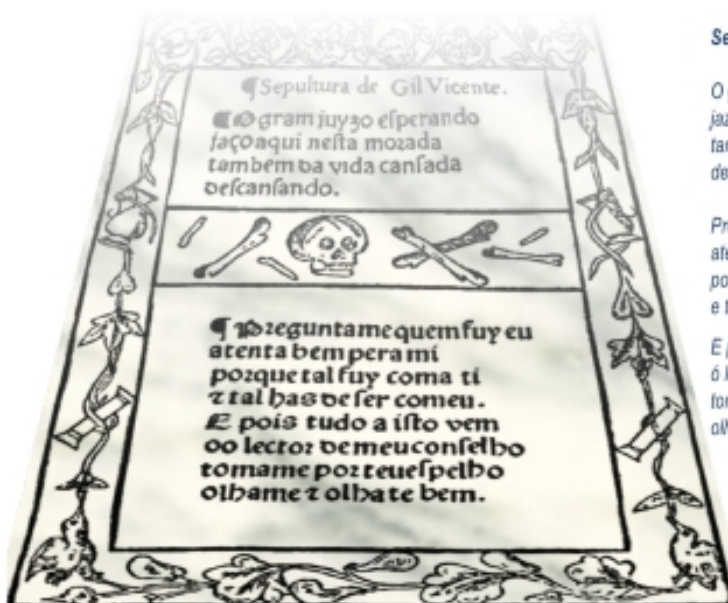 ¶ Sepultura de Gil Vicente.
¶ O gram juyzo eſperando
jaço aqui neſta morada
tambem da vida canſada
deſcanſando.
¶ Preguntame quem fuy eu
atenta bem pera mi
porque tal fuy coma ti
⁊ tal has de ſer comeu.
E pois tudo a iſto vem
oo lector de meu conſelho
tomame por teu eſpelho
olhame ⁊ olhate bem.
Se
O
jaz
tar
de
Pr
ate
po
e t
E
ó l
for
olh